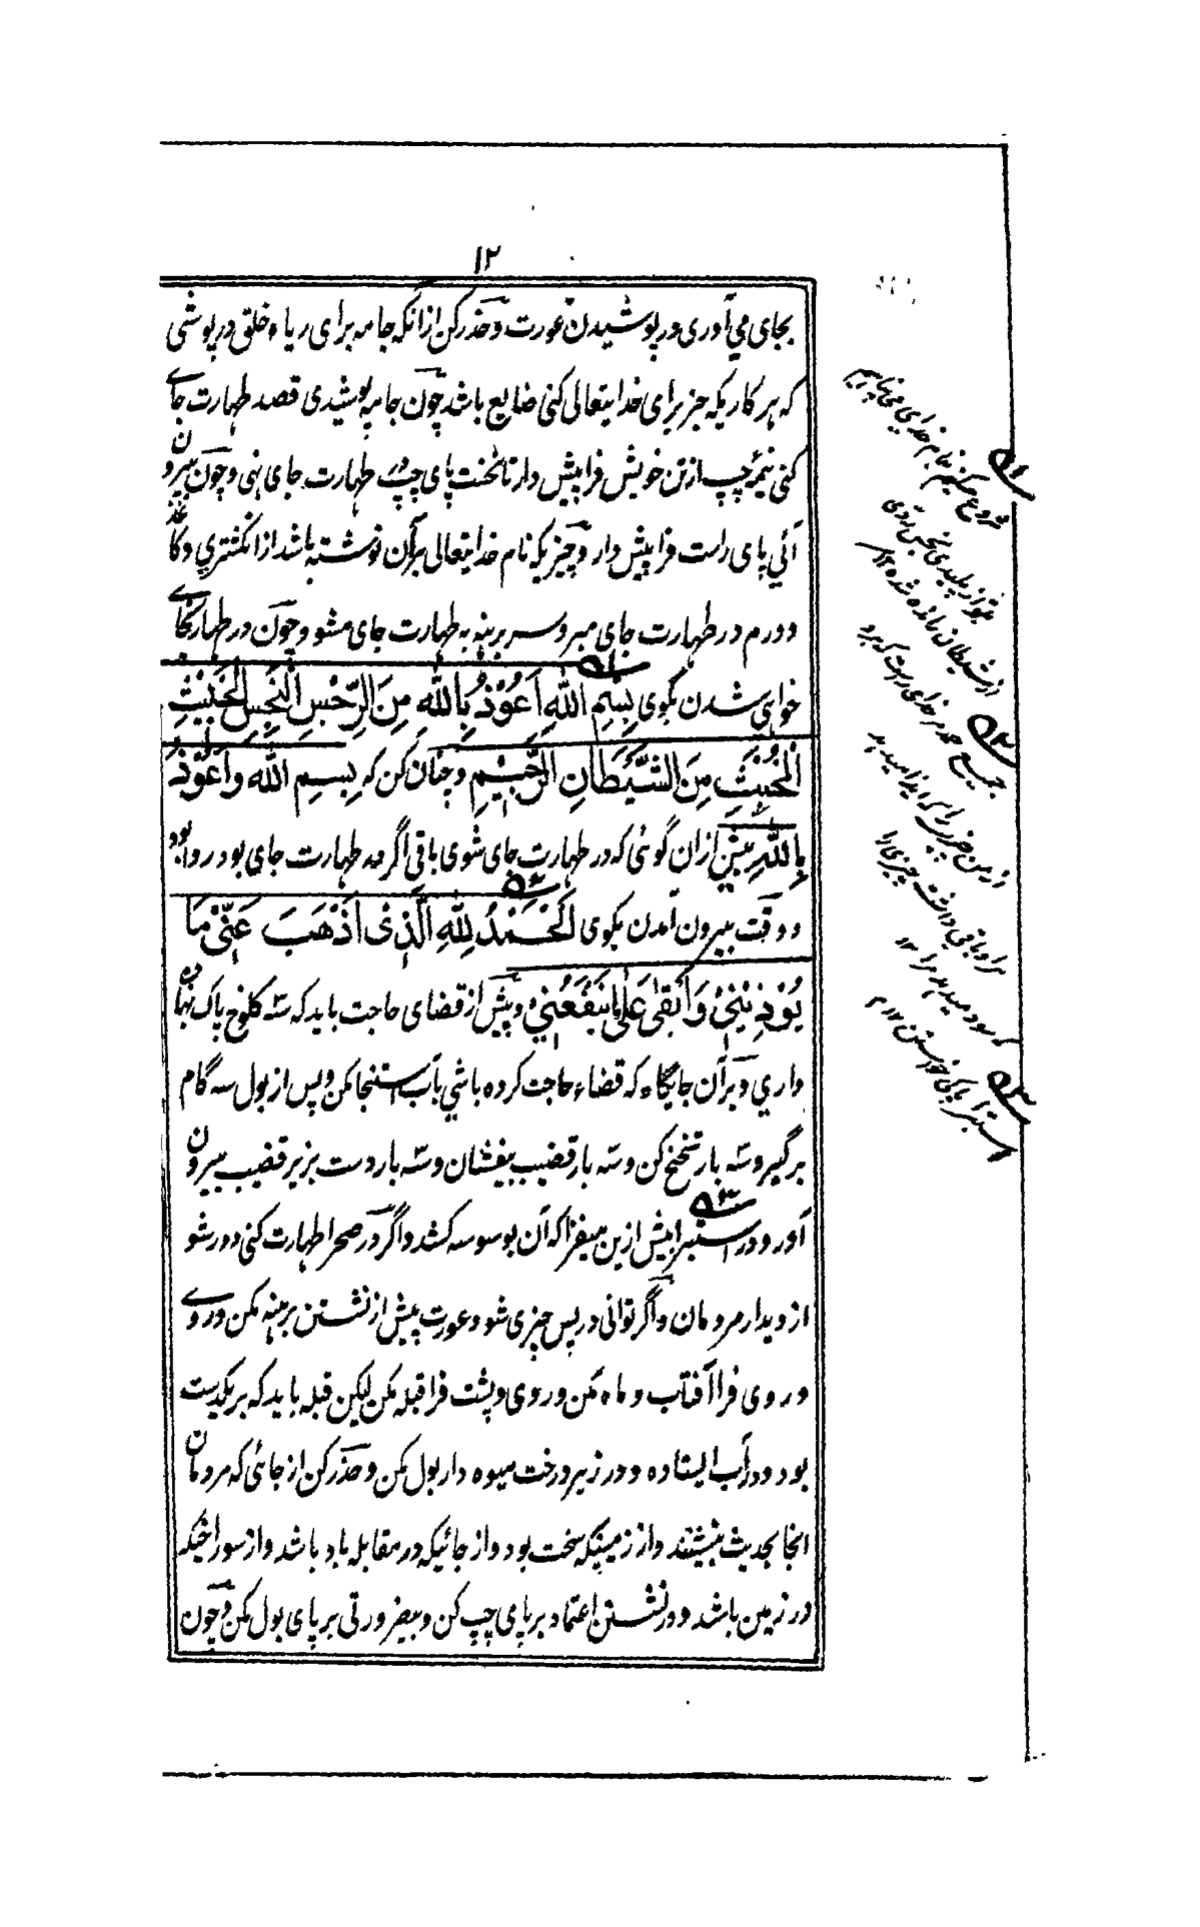 ۱۲
بجای می آوری در پوشیدن عورت و حذر کن از آنکه جامه برای ریاء خلق در پوشی
که هر کاریکه جز برای خدایتعالی کنی ضایع باشد چون جامه پوشیدی قصد طهارت جاے
کنی نیمۀ چپ از تن خویش فرا پیش دار تا نخست پای چپ در طهارت جای نهی و چون بیرون
آئی پای راست فرا پیش دار و چیزیکه نام خدایتعالی بر آن نوشته باشد از انگشتری و کاغذ
و درم در طهارت جای مبر و سر برهنه به طهارت جای مشو و چون در طهارتجاے
خواهی شدن بگوی بِسْمِ اللهِ اَعُوْذُ بِاللهِ مِنَ الرِّجْسِ النَّجِسِ الْخَبِيْثِ
الْمُخْبِثِ مِنَ الشَّيْطَانِ الرَّجِيْمِ و چنان کن که بِسْمِ الله وَاَعُوْذُ
بِاللهِ پیش ازان گوئی که در طهارت جای شوی باقی اگر در طهارت جای بود روا بود
و وقت بیرون آمدن بگوی اَلْحَمْدُ لِلهِ الَّذِیْ اَذْهَبَ عَنِّیْ مَا
يُوْذِيْنِیْ وَاَبْقٰی عَلَیَّ مَا يَنْفَعُنِیْ و پیش از قضای حاجت باید که سه کلوخ پاک نهاده
داری و بر آن جایگاه که قضاء حاجت کرده باشی بآب استنجا مکن و پس از بول سه گام
برگیر و سه بار تنحنح کن و سه بار قضیب بیفشان و سه بار دست بزیر قضیب بیرون
آور و در استبرا بیش ازین میفزا که آن بوسوسه کشد و اگر در صحرا طهارت کنی دور شو
از دیدار مردمان و اگر توانی در پس چیزی شو و عورت پیش از نشستن برهنه مکن و روے
و روی فرا آفتاب و ماه مکن و روی و پشت فرا قبله مکن لیکن قبله باید که بر یکدست
بود و در آب ایستاده و در زیر درخت میوه دار بول مکن و حذر کن از جائی که مردمان
انجا بحدیث بنشینند و از زمینیکه سخت بود و از جائیکه در مقابله باد باشد و از سوراخیکه
در زمین باشد و در نشستن اعتماد بر پای چپ کن و بیضرورتی بر پای بول مکن و چون
شروع میکنم بنام خدای پناه میگیرم
از شیطان رانده شده ۱۲
جمیع حمد مر خدای راست که برد
از من چیزی را که ایذا میدهد
مرا و باقی داشت چیزی را
که سود میدهد مرا ۱۲
استبرا پاکی خواستن ۱۲ م